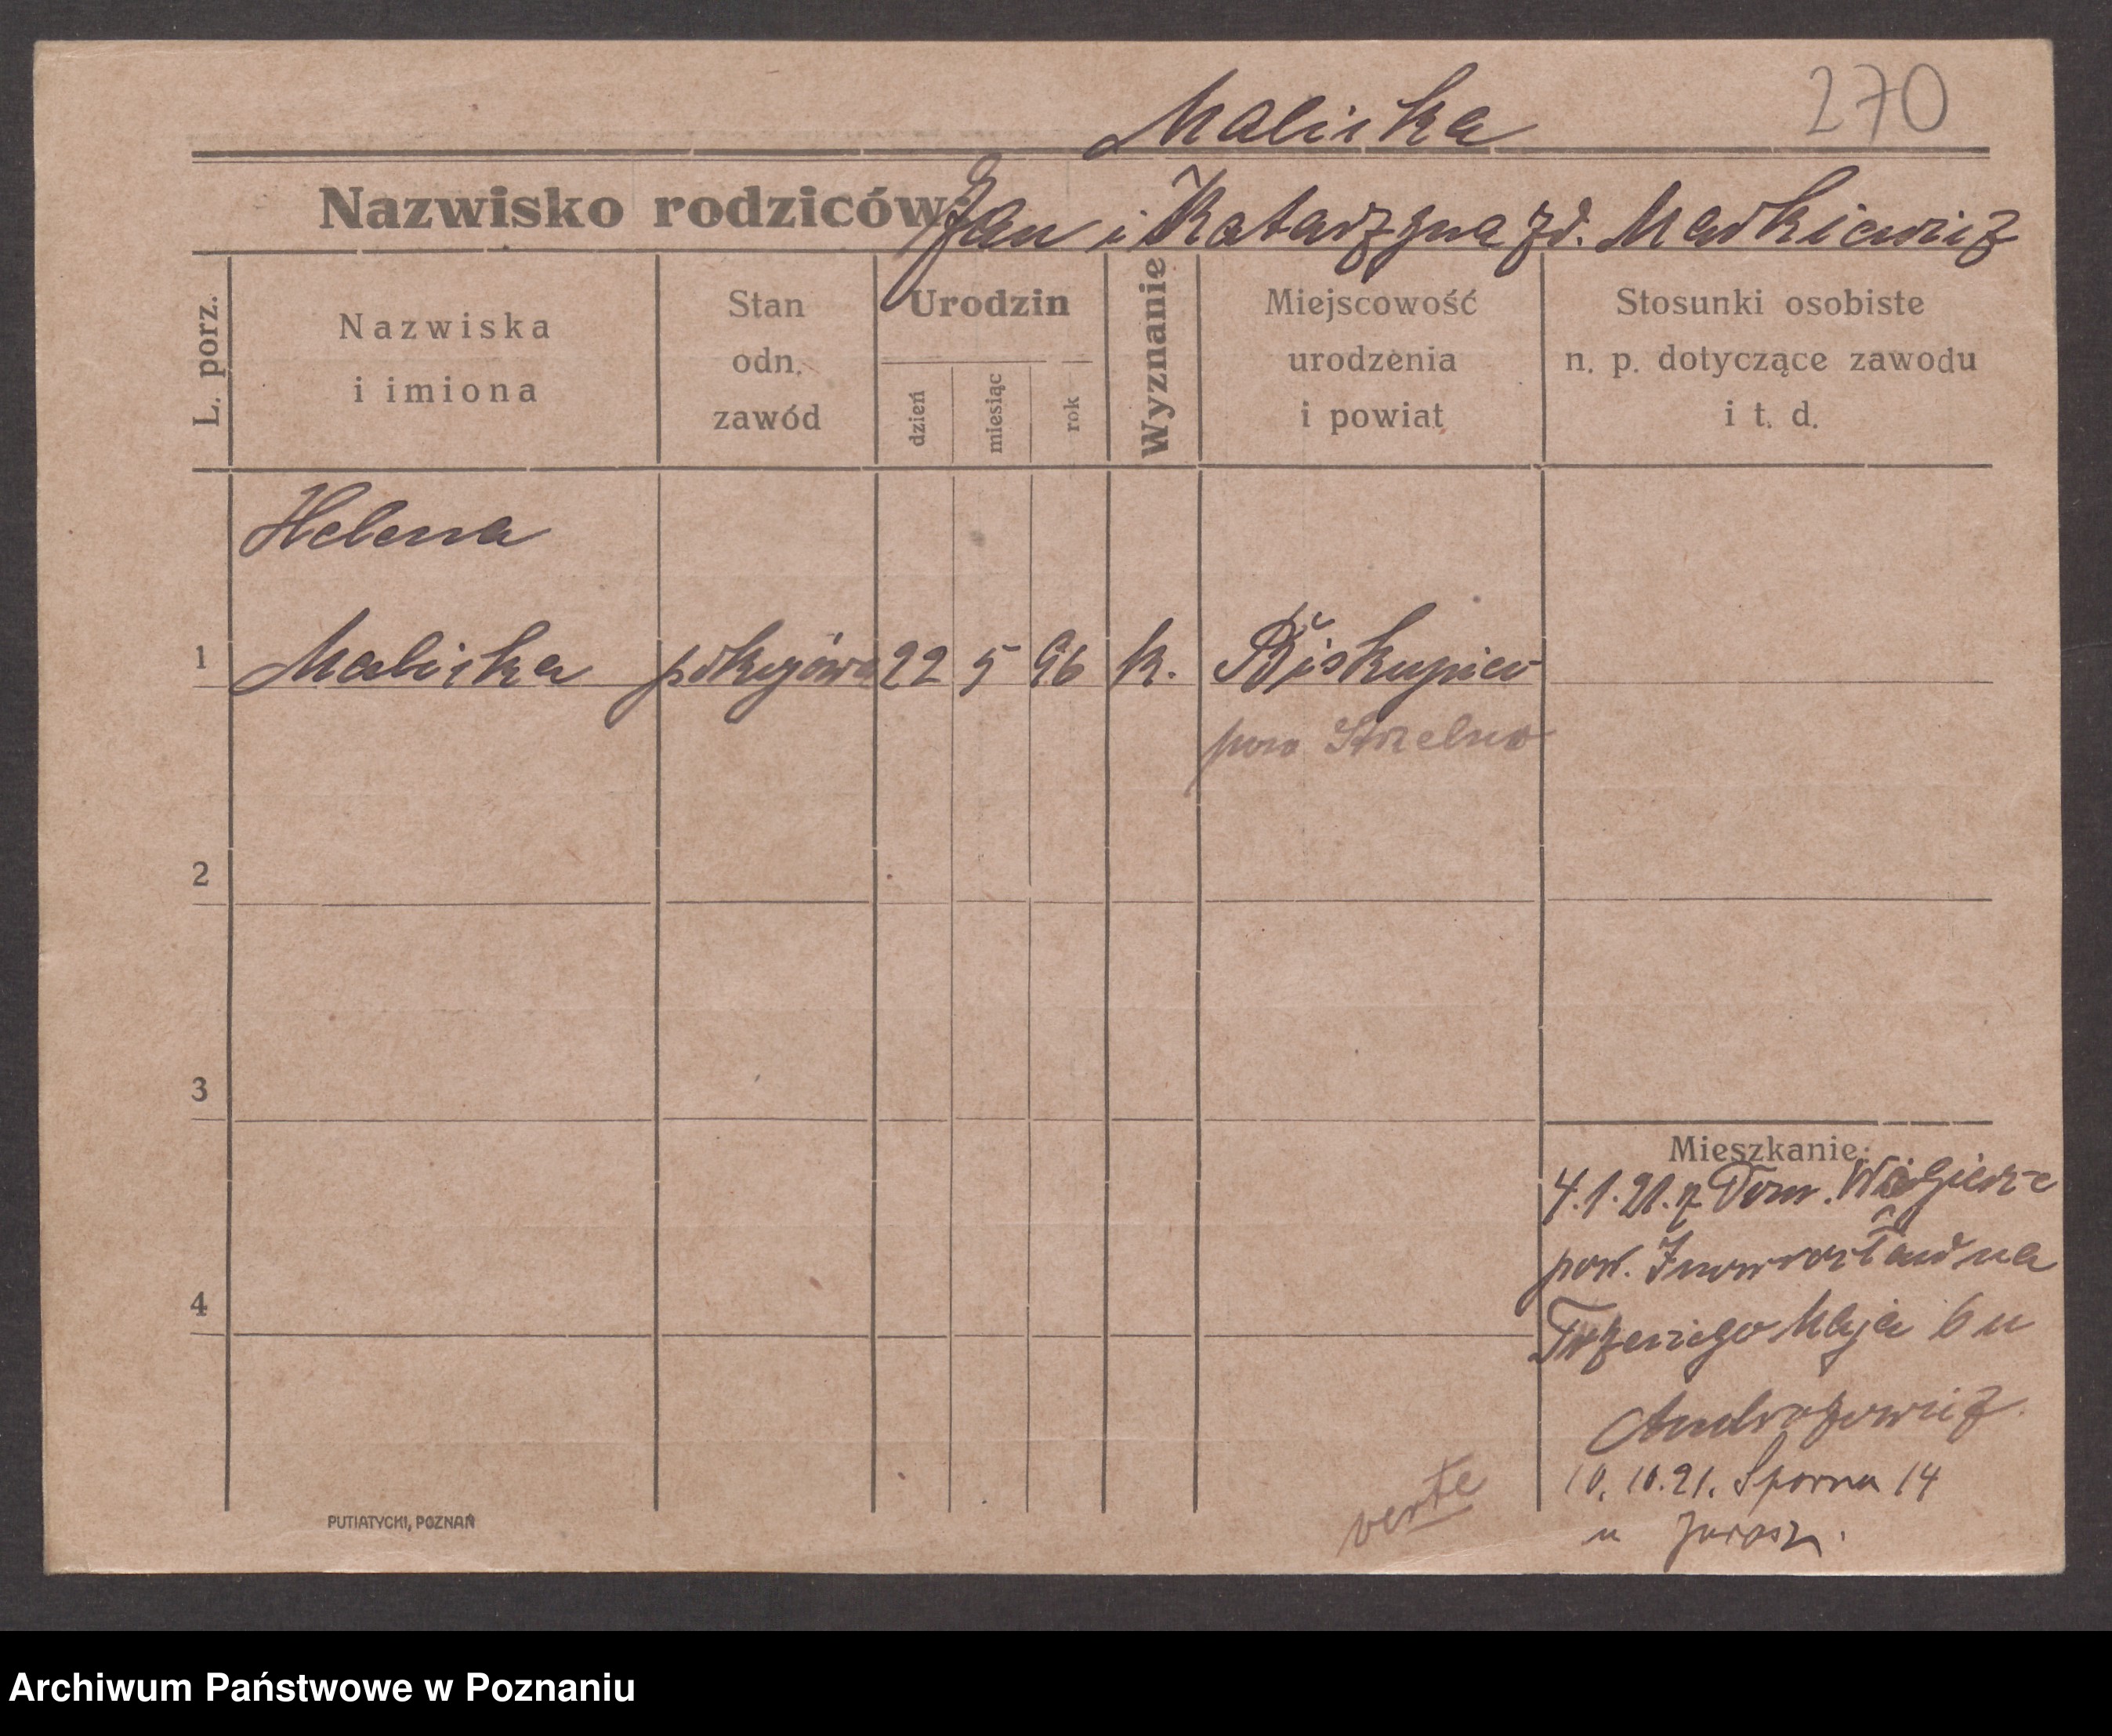 270
Malicka
Nazwisko rodziców: Jan i Katarzyna zd. Markiewicz
L. porz.
Nazwiska i imiona
Stan odn. zawód
Urodzin
dzień
miesiąc
rok
Wyznanie
Miejscowość urodzenia i powiat
Stosunki osobiste n. p. dotyczące zawodu i t. d.
Helena
1 Malicka pokojówa 22 5 96 k.
pow Strzelno
2
3
4
Mieszkanie:
4.1.21. z Dom.
pow. na
Trzeciego Maja 6 u
10.10.21. Sporna 14
u
verte
PUTIATYCKI, POZNAŃ
Archiwum Państwowe w Poznaniu